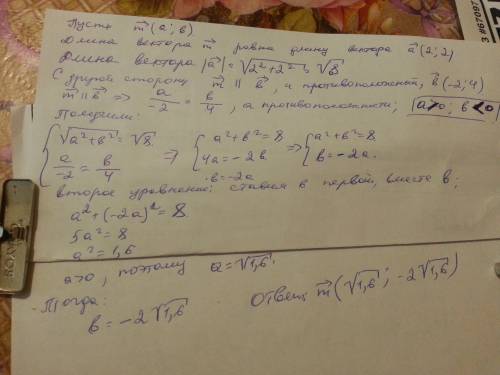 Пусть m⃗ (a; в)
Длина вектора m⃗ равна длину вектора a⃗ (2; 2)
Длина вектора |a⃗| = √2²+2² = √8
С другой стороны m⃗ ∥ в⃗, а противоположени, в⃗ (-2; 4)
m⃗ ∥ в⃗ ⇒ a/-2 = в/4, а противоположности; a>0; в<0
Получим:
{ √a²+в² = √8 ⇒ { a²+в² = 8 ⇒ { a²+в² = 8
a/-2 = в/4 4a = -2в в = -2a.
в = -2a
второе уравнение ставия в первой, вместе в;
a² + (-2a)² = 8
5a² = 8
a² = 1,6
a>0, поэтому a = √1,6.
Тогда:
в = -2√1,6
Ответ m⃗ (√1,6; -2√1,6)